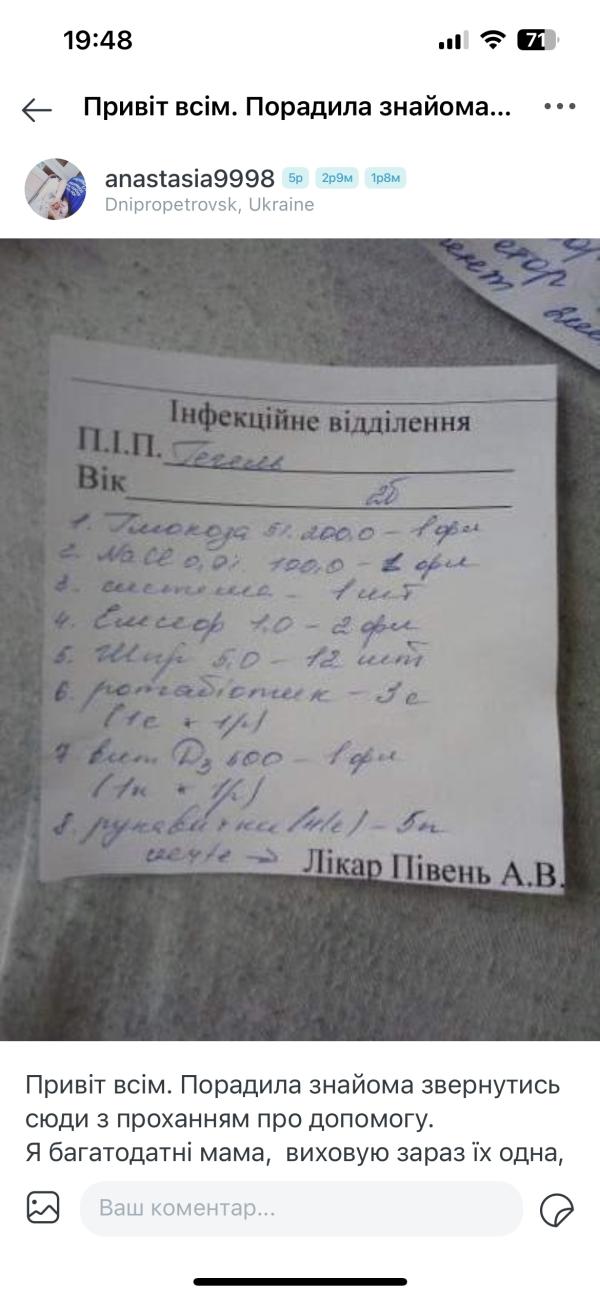 19:48
71
Привіт всім. Порадила знайома...
anastasia9998 5р 2р9м 1р8м
Dnipropetrovsk, Ukraine
Інфекційне відділення
П.І.П. Гегель
Вік 2б
1. Глюкоза 5% 200,0 – 1 фл
2. NaCl 0,9% 100,0 – 1 фл
3. система – 1 шт
4. 1,0 – 2 фл
5. Шпр 5,0 – 12 шт
6. ротабіотик – 3 с
(1с × 1/)
7 віт D3 – 1 фл
(1к × 1/)
8. рукавички (н/с) – 5п
Лікар Півень А.В.
Привіт всім. Порадила знайома звернутись
сюди з проханням про допомогу.
Я багатодатні мама, виховую зараз їх одна,
Ваш коментар...